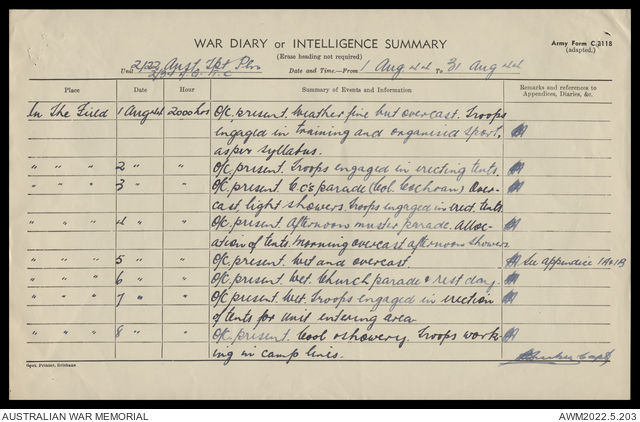 WAR DIARY or INTELLIGENCE SUMMARY
(Erase heading not required)
Army Form C.2118
(adapted.)
Unit 2/22 Aust Tpt Pln
Date and Time.—From 1 Aug 44 To 31 Aug 44
Place Date Hour Summary of Events and Information Remarks and references to
Appendices, Diaries, &c.
In The Field 1 Aug 44 2000 hrs O/C present. Weather fine but overcast. Troops
engaged in training and organised sport,
as per syllabus.
" " " 2 " " O/C present. Troops engaged in erecting tents.
" " " 3 " " O/C present. C.C's parade (Col. Cochran) Over-
cast light showers. Troops engaged in erect. tents.
" " " 4 " " O/C present. Afternoons muster parade. Alloc-
ation of tents. Morning overcast afternoon showers
" " " 5 " " O/C present. Wet and overcast. See appendice 1A & 1B
" " " 6 " " O/C present. Wet. Church parade & rest day.
" " " 7 " " O/C present. Wet. Troops engaged in erection
of tents for unit entering area
" " " 8 " " O/C present. Cool & showery. Troops work-
ing in camp lines.
Capt
Govt. Printer, Brisbane
AUSTRALIAN WAR MEMORIAL AWM2022.5.203